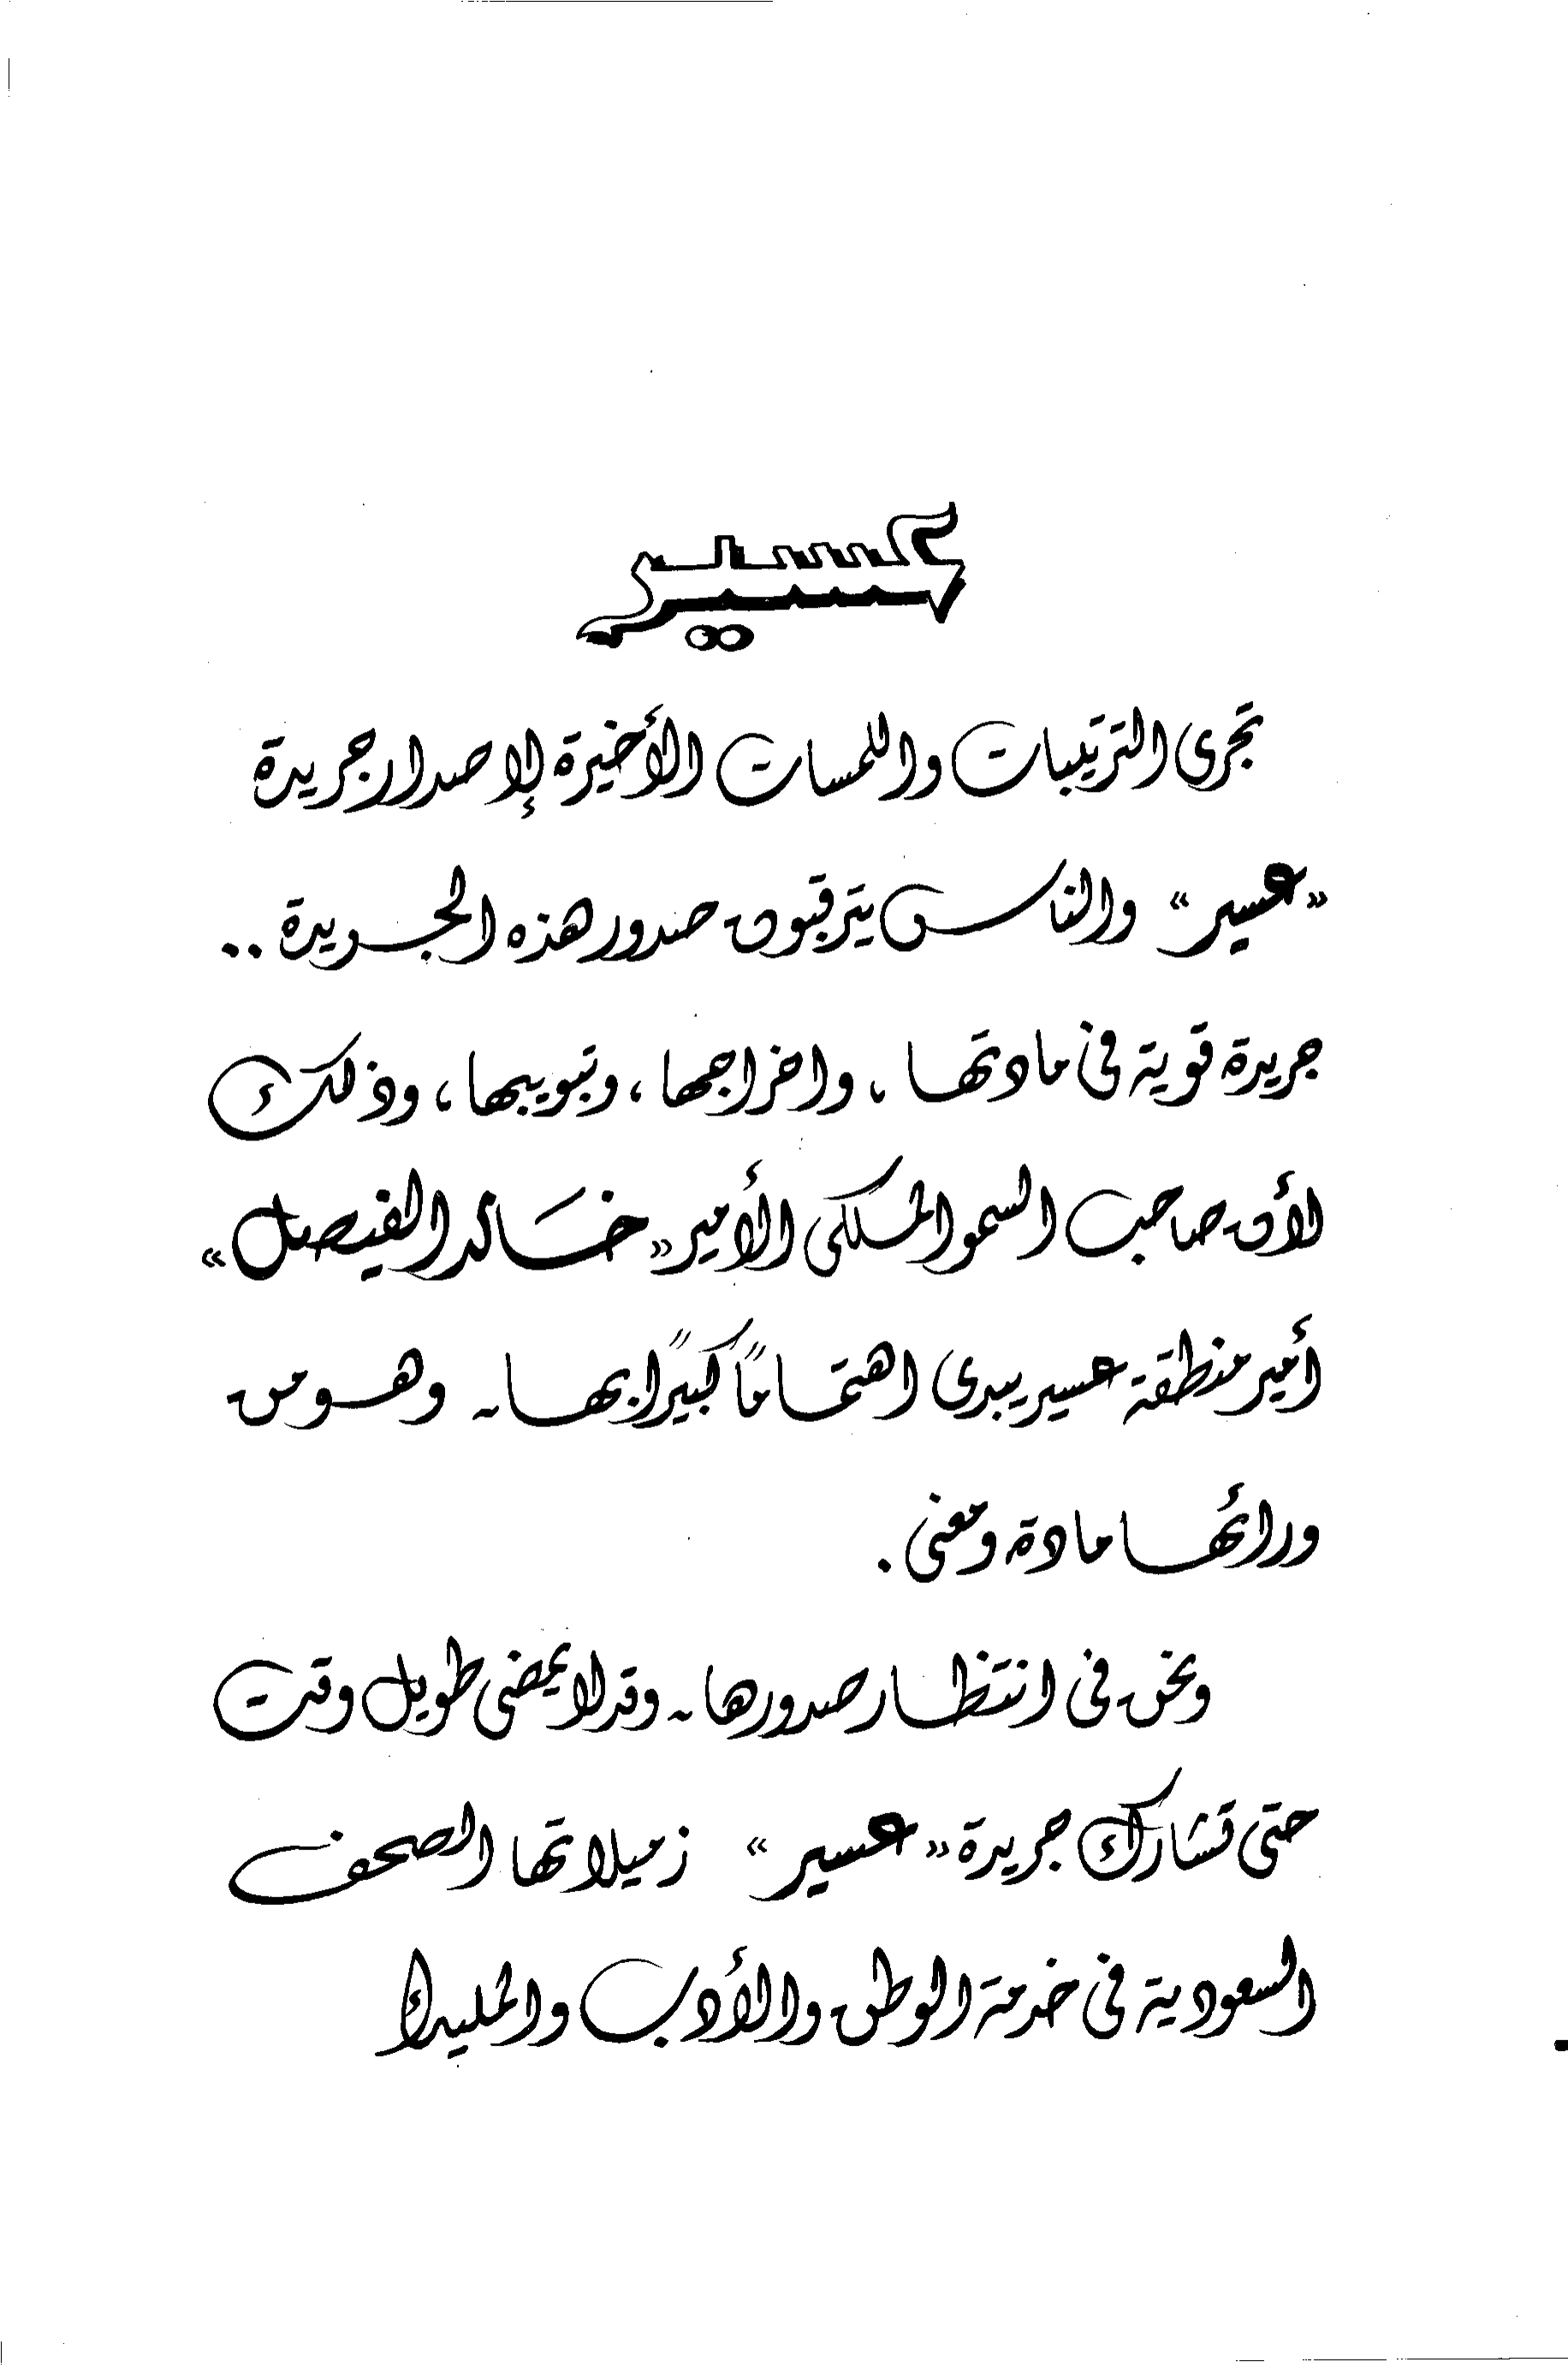 عسير
تجرى الترتيبات واللمسات الأخيرة لإصدار جريدة
«عسير» والناس يترقبون صدور هذه الجريدة ..
جريدة قوية فى مادتها ، واخراجها ، وتبويبها ، وذلك
لأن صاحب السمو الملكى الأمير «خالد الفيصل»
أمير منطقة عسير يبدى اهتمامًا كبيرًا بها .. وهو من
ورائها مادة ومعنى .
ونحن فى انتظار صدورها .. وقد لا يمضى طويل وقت
حتى تشارك جريدة «عسير» زميلاتها الصحف
السعودية فى خدمة الوطن والأدب والمليك